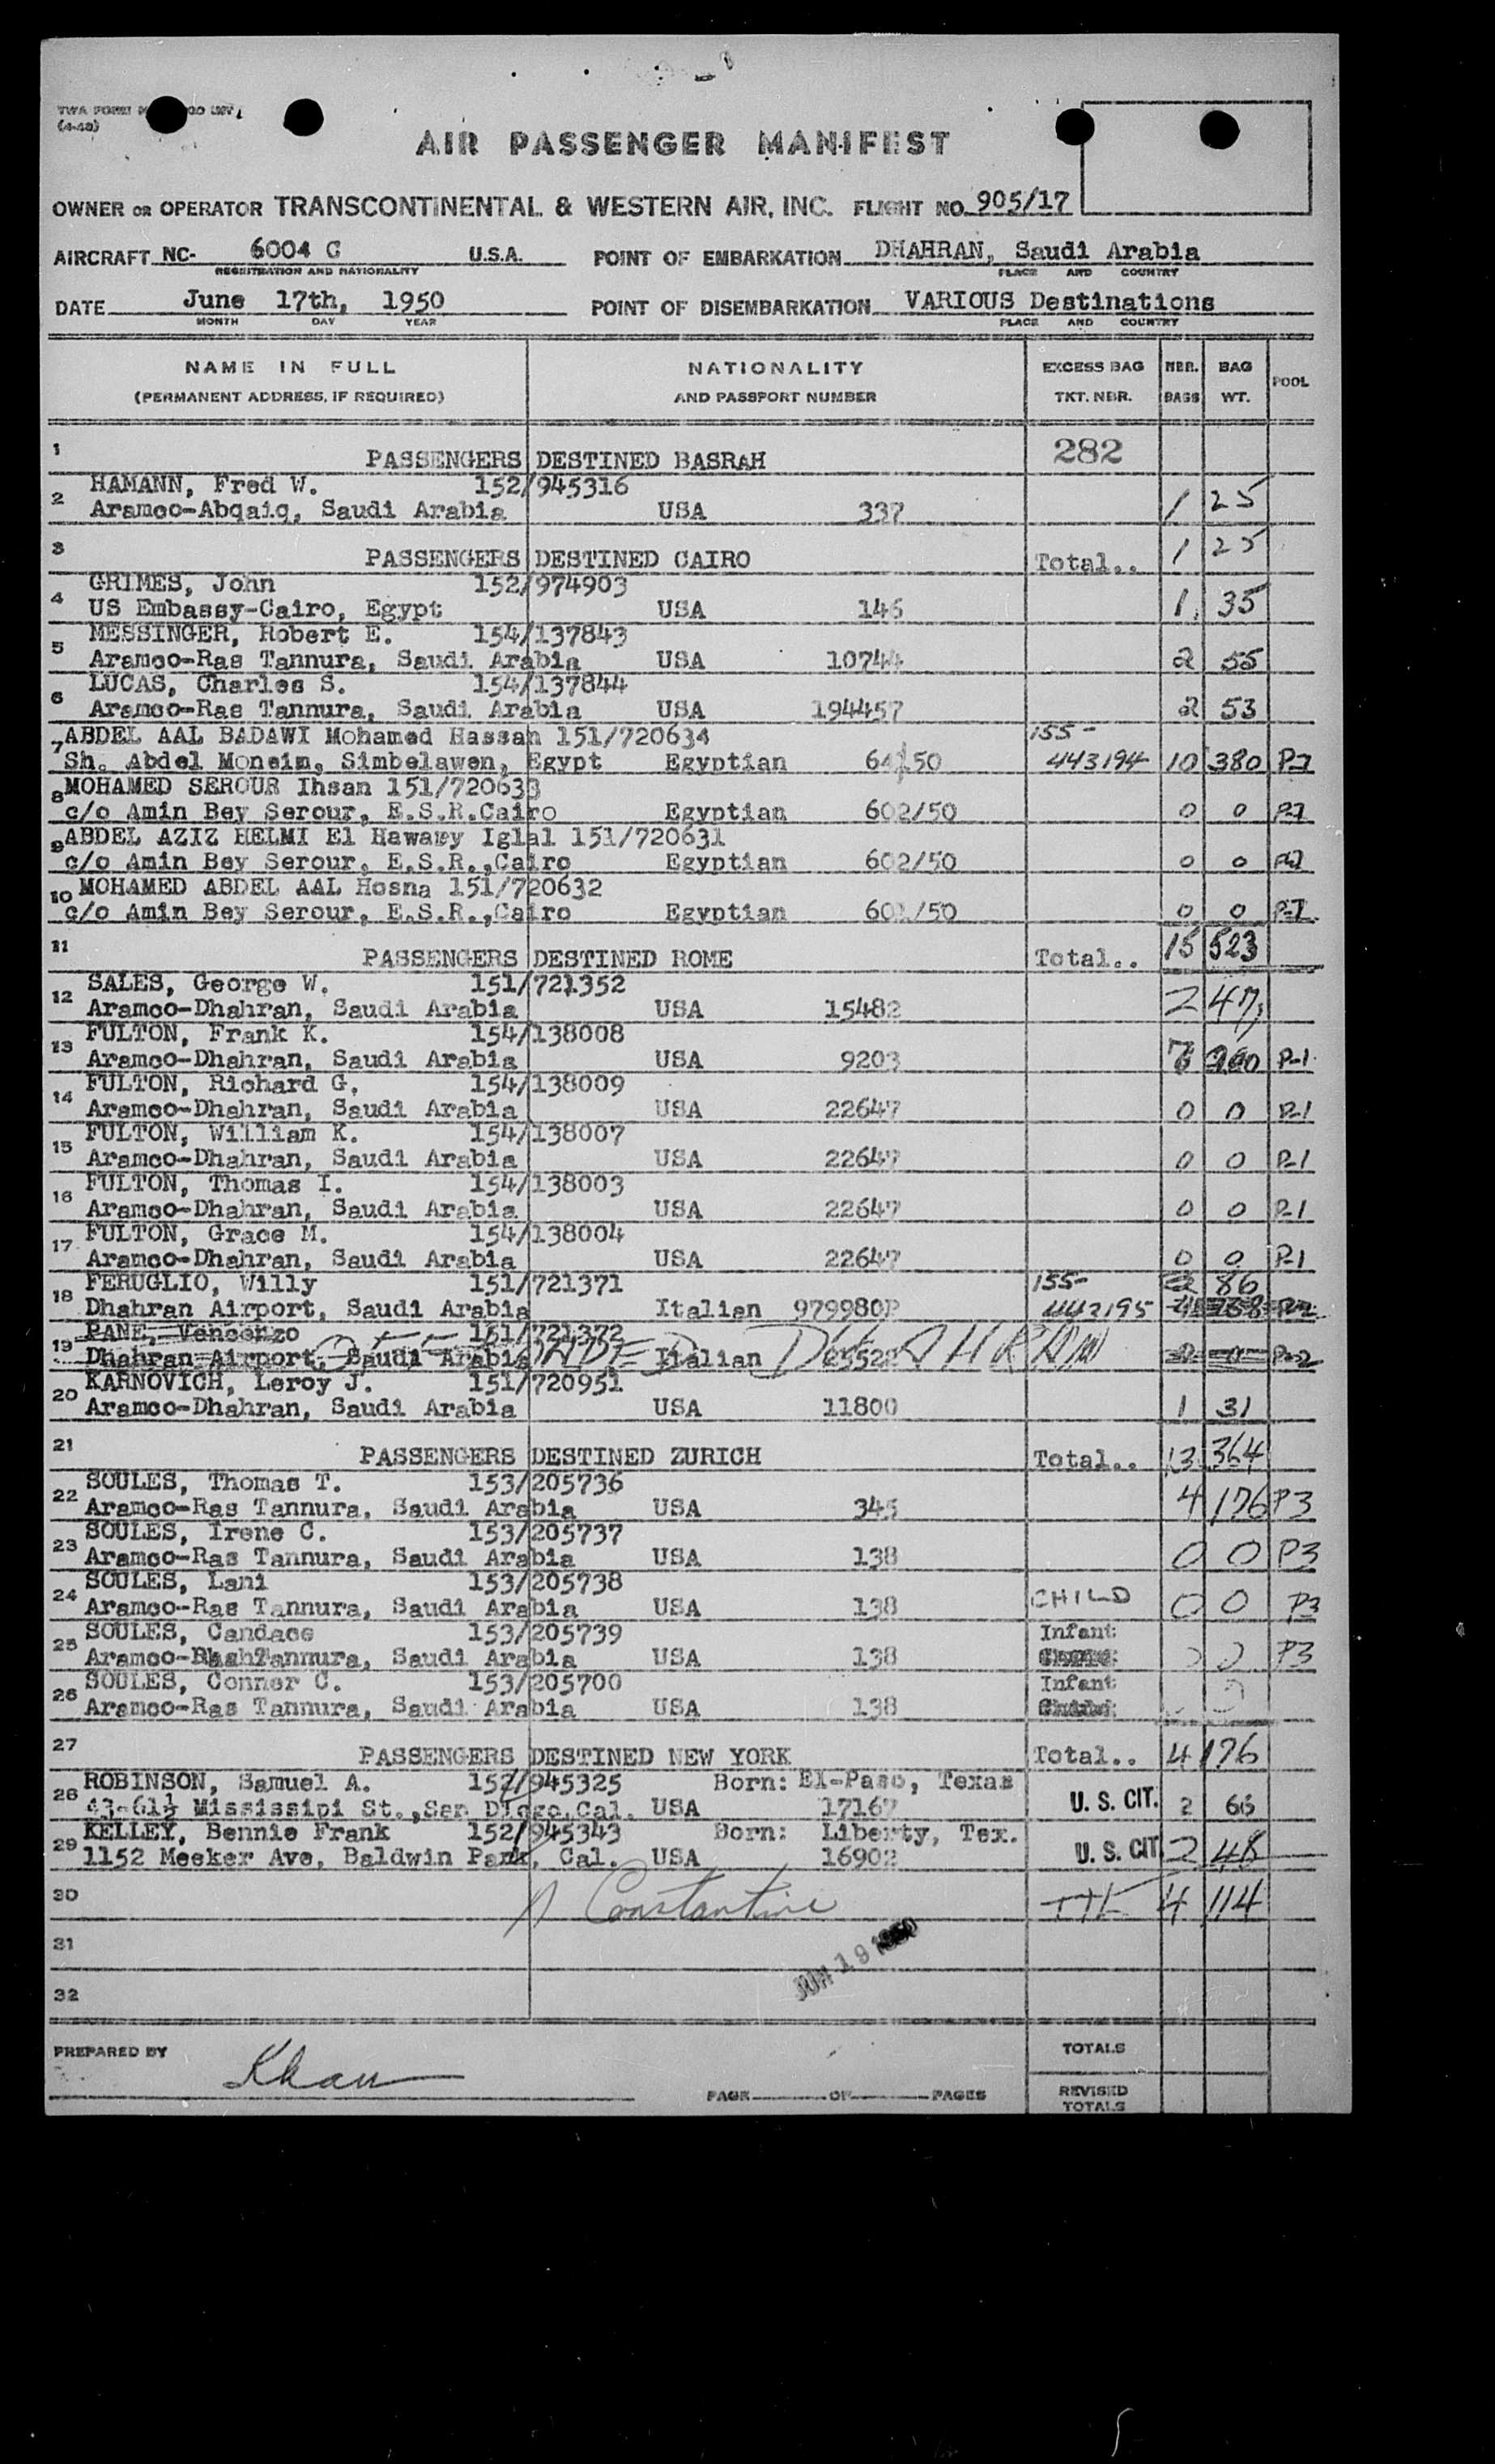 TWA FORM
(4-48)
AIR PASSENGER MANIFEST
OWNER OR OPERATOR TRANSCONTINENTAL & WESTERN AIR, INC. FLIGHT NO. 905/17
AIRCRAFT NC- 6004 C U.S.A. POINT OF EMBARKATION DHAHRAN, Saudi Arabia
REGISTRATION AND NATIONALITY PLACE AND COUNTRY
DATE June 17th, 1950 POINT OF DISEMBARKATION VARIOUS Destinations
MONTH DAY YEAR PLACE AND COUNTRY
NAME IN FULL NATIONALITY EXCESS BAG NBR. BAG POOL
(PERMANENT ADDRESS, IF REQUIRED) AND PASSPORT NUMBER TKT. NBR. BAGS WT.
1 PASSENGERS DESTINED BASRAH 282
2 HAMANN, Fred W. 152/945316
Aramco-Abqaiq, Saudi Arabia USA 337 1 25
3 PASSENGERS DESTINED CAIRO Total.. 1 25
4 GRIMES, John 152/974903
US Embassy-Cairo, Egypt USA 146 1 35
5 MESSINGER, Robert E. 154/137843
Aramco-Ras Tannura, Saudi Arabia USA 10744 2 55
6 LUCAS, Charles S. 154/137844
Aramco-Ras Tannura, Saudi Arabia USA 194457 2 53
7 ABDEL AAL BADAWI Mohamed Hassan 151/720634 155-
Sh. Abdel Moneim, Simbelawen, Egypt Egyptian 443194 10 380 P-7
8 MOHAMED SEROUR Ihsan 151/720633
c/o Amin Bey Serour, E.S.R.Cairo Egyptian 602/50 0 0 P-7
9 ABDEL AZIZ HELMI El Hawary Iglal 151/720631
c/o Amin Bey Serour, E.S.R.,Cairo Egyptian 602/50 0 0 P-7
10 MOHAMED ABDEL AAL Hosna 151/720632
c/o Amin Bey Serour, E.S.R.,Cairo Egyptian 0 0 P-7
11 PASSENGERS DESTINED ROME Total.. 15 523
12 SALES, George W. 151/721352
Aramco-Dhahran, Saudi Arabia USA 15482 2 47
13 FULTON, Frank K. 154/138008
Aramco-Dhahran, Saudi Arabia USA 9203 P-1
14 FULTON, Richard G. 154/138009
Aramco-Dhahran, Saudi Arabia USA 22647 0 0 P-1
15 FULTON, William K. 154/138007
Aramco-Dhahran, Saudi Arabia USA 22647 0 0 P-1
16 FULTON, Thomas I. 154/138003
Aramco-Dhahran, Saudi Arabia USA 22647 0 0 P-1
17 FULTON, Grace M. 154/138004
Aramco-Dhahran, Saudi Arabia USA 22647 0 0 P-1
18 FERUGLIO, Willy 151/721371 155- 86
Dhahran Airport, Saudi Arabia Italian 979980P 442195
19 PANE, Vencenzo 151/721372
Dhahran Airport, Saudi Arabia Italian DHAHRAN
20 KARNOVICH, Leroy J. 151/720951
Aramco-Dhahran, Saudi Arabia USA 11800 1 31
21 PASSENGERS DESTINED ZURICH Total.. 13 364
22 SOULES, Thomas T. 153/205736
Aramco-Ras Tannura, Saudi Arabia USA 345 4 176 P3
23 SOULES, Irene C. 153/205737
Aramco-Ras Tannura, Saudi Arabia USA 138 0 0 P3
24 SOULES, Lani 153/205738 CHILD
Aramco-Ras Tannura, Saudi Arabia USA 138 0 0 P3
25 SOULES, Candace 153/205739 Infant
Tannura, Saudi Arabia USA 138 0 0 P3
26 SOULES, Conner C. 153/205700 Infant
Aramco-Ras Tannura, Saudi Arabia USA 138
27 PASSENGERS DESTINED NEW YORK Total.. 4 176
28 ROBINSON, Samuel A. 152/945325 Born: El-Paso, Texas
43-61½ Mississipi St.,San Diego,Cal. USA 17167 U. S. CIT. 2 66
29 KELLEY, Bennie Frank 152/945343 Born: Liberty, Tex.
1152 Meeker Ave, Baldwin Park, Cal. USA 16902 U. S. CIT. 2 48
30 Constantine TTL 4 114
31 JUN 19 1950
32
PREPARED BY Khan TOTALS
PAGE OF PAGES REVISED
TOTALS